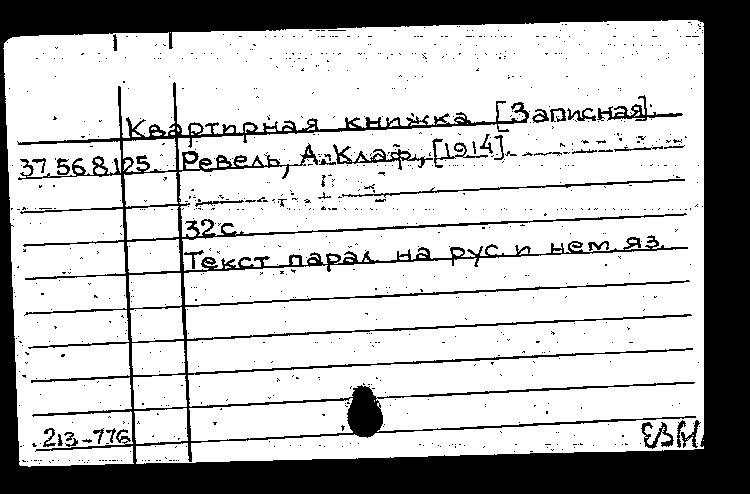 Квартирная книжка [Записная].
37.56.8.125. Ревель, А. Клаф, [1914].
32 с.
Текст парал. на рус. и нем. яз.
213-776